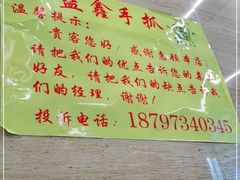 盖鑫手抓
温馨提示：
贵客您好：感谢惠顾本店，
请把我们的优点告诉您的亲
好友，请把我们的缺点告诉我
们的经理，谢谢！
投诉电话：18797340345